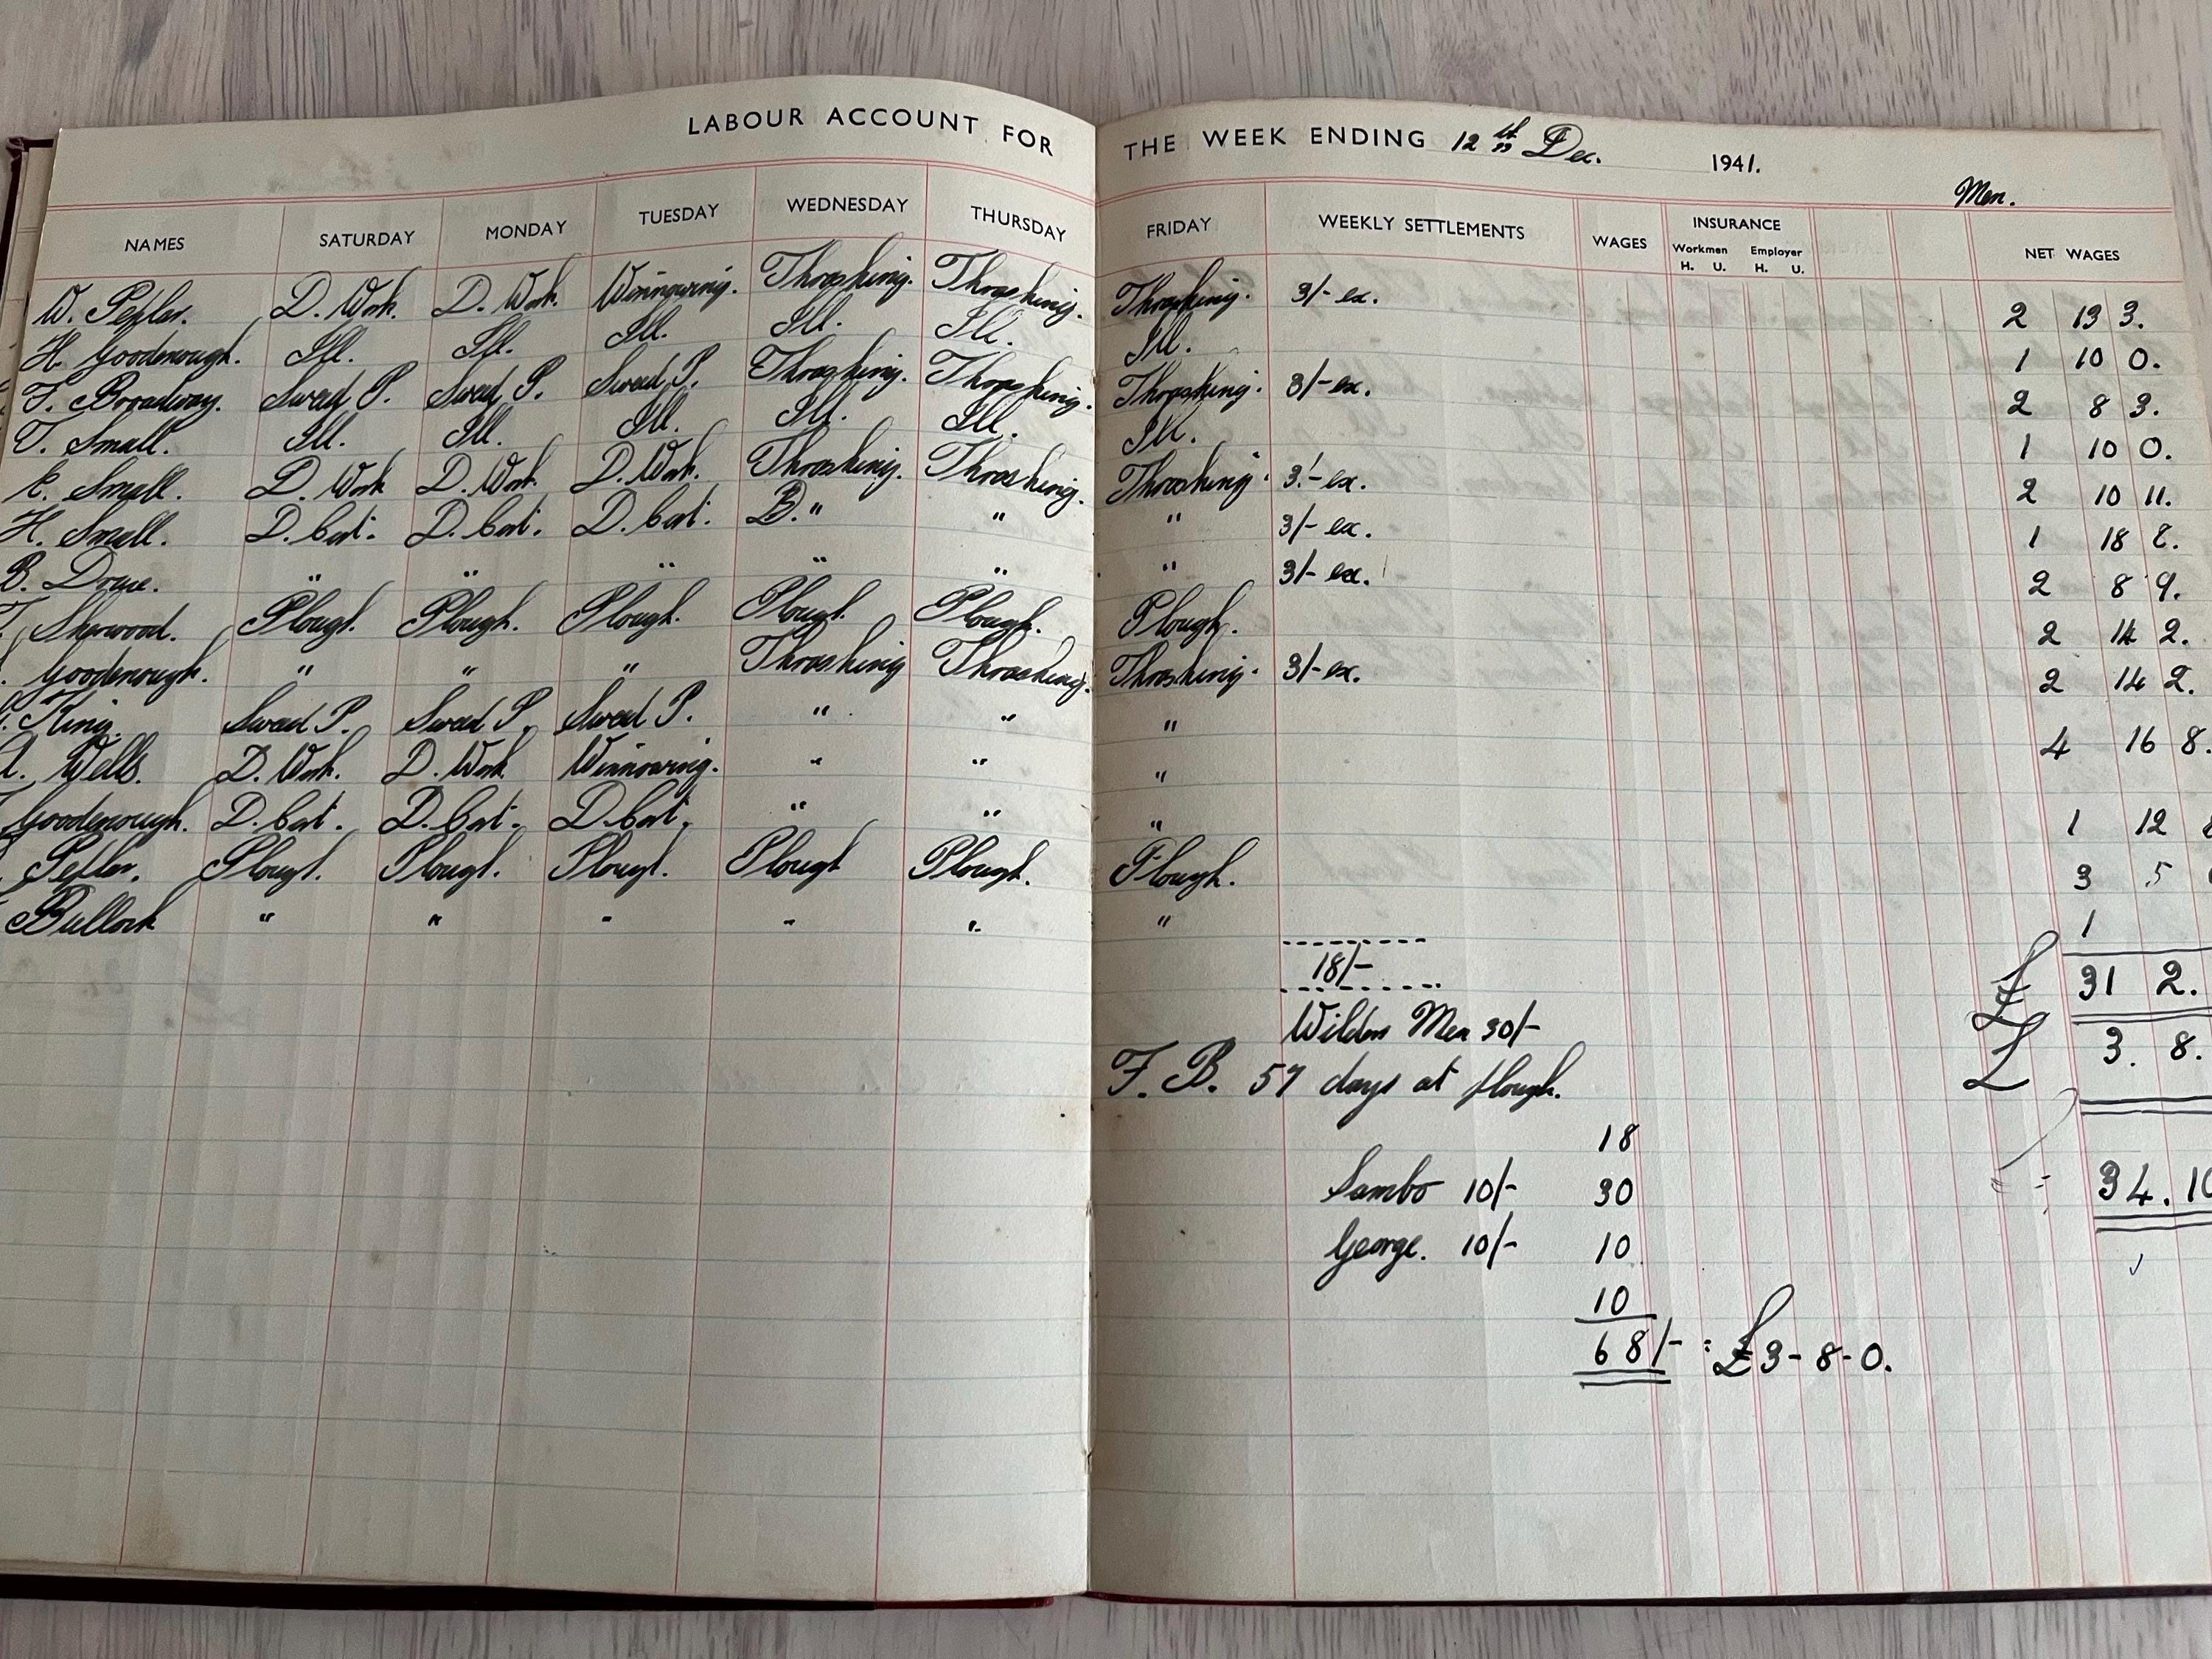 LABOUR ACCOUNT FOR THE WEEK ENDING 12th Dec. 1941.
Men.
NAMES SATURDAY MONDAY TUESDAY WEDNESDAY THURSDAY FRIDAY WEEKLY SETTLEMENTS WAGES INSURANCE NET WAGES
Workmen Employer
H. U. H. U.
W. D. Work. D. Work. Winnowing. Thrashing. Thrashing. Thrashing. 3/- ex. 2 13 3.
H. Goodenough. Ill. Ill. Ill. Ill. Ill. Ill. 1 10 0.
Broadway. Swead P. Swead P. Swead P. Thrashing. Thrashing. Thrashing. 3/- ex. 2 8 3.
Small. Ill. Ill. Ill. Ill. Ill. Ill. 1 10 0.
E. Small. D. Work D. Work. D. Work. Thrashing. Thrashing. Thrashing. 3/- ex. 2 10 11.
H. Small. D. Cart. D. Cart. D. Cart. D. " " " 3/- ex. 1 18 8.
B. Drew. " " " " " " 3/- ex. 2 8 9.
Sherwood. Plough. Plough. Plough. Plough. Plough. Plough. 2 14 2.
Goodenough. " " " Thrashing Thrashing. Thrashing. 3/- ex. 2 14 2.
King. Swead P. Swead P. Swead P. " " " 4 16 8.
Wells. D. Work. D. Work Winnowing. " " "
Goodenough. D. Cart. D. Cart. D. Cart. " " " 1 12
Plough. Plough. Plough. Plough Plough. Plough. 3 5
Bullock " " " " " " 1
18/- £ 31 2.
Men 30/- £ 3. 8.
F. B. 57 days at plough.
18
Sambo 10/- 30 = 34. 10
George. 10/- 10
10
68/- : £3-8-0.